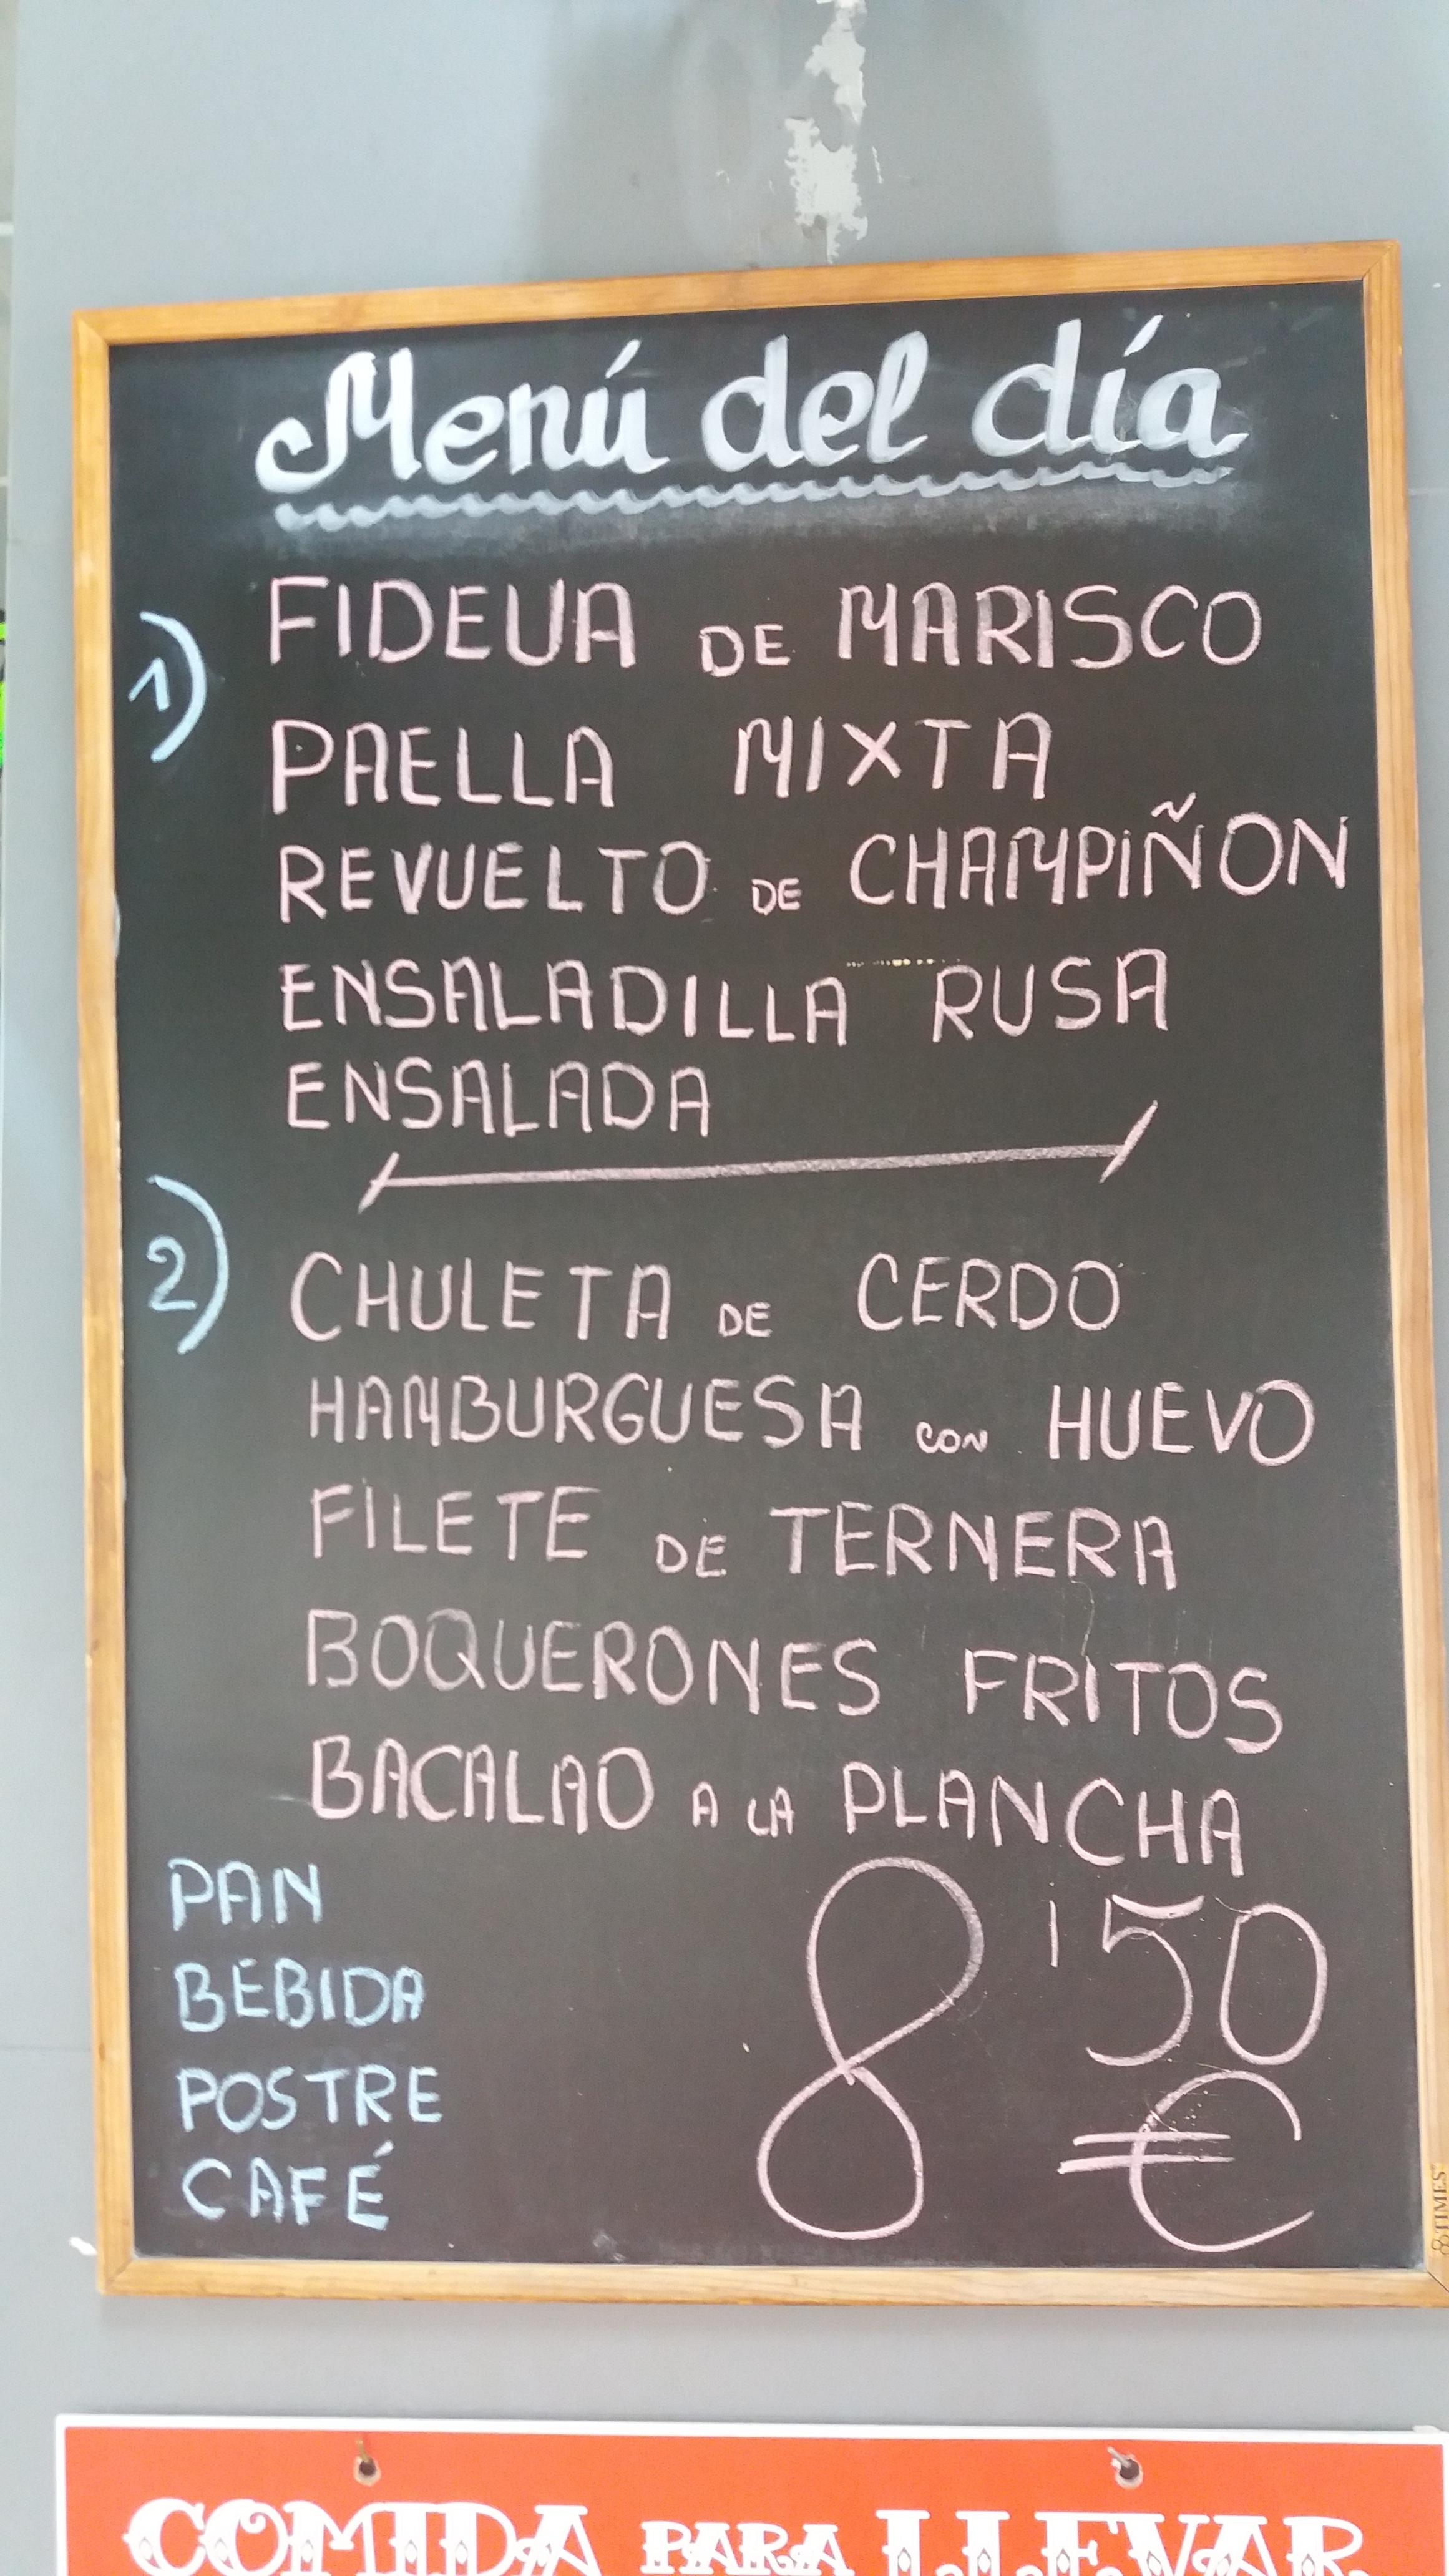 Menú del día
1) FIDEUA DE MARISCO
PAELLA MIXTA
REVUELTO DE CHAMPIÑON
ENSALADILLA RUSA
ENSALADA
2) CHULETA DE CERDO
HAMBURGUESA CON HUEVO
FILETE DE TERNERA
BOQUERONES FRITOS
BACALAO A LA PLANCHA
PAN
BEBIDA
POSTRE
CAFÉ
8'50
€
TIMES
COMIDA PARA LLEVAR